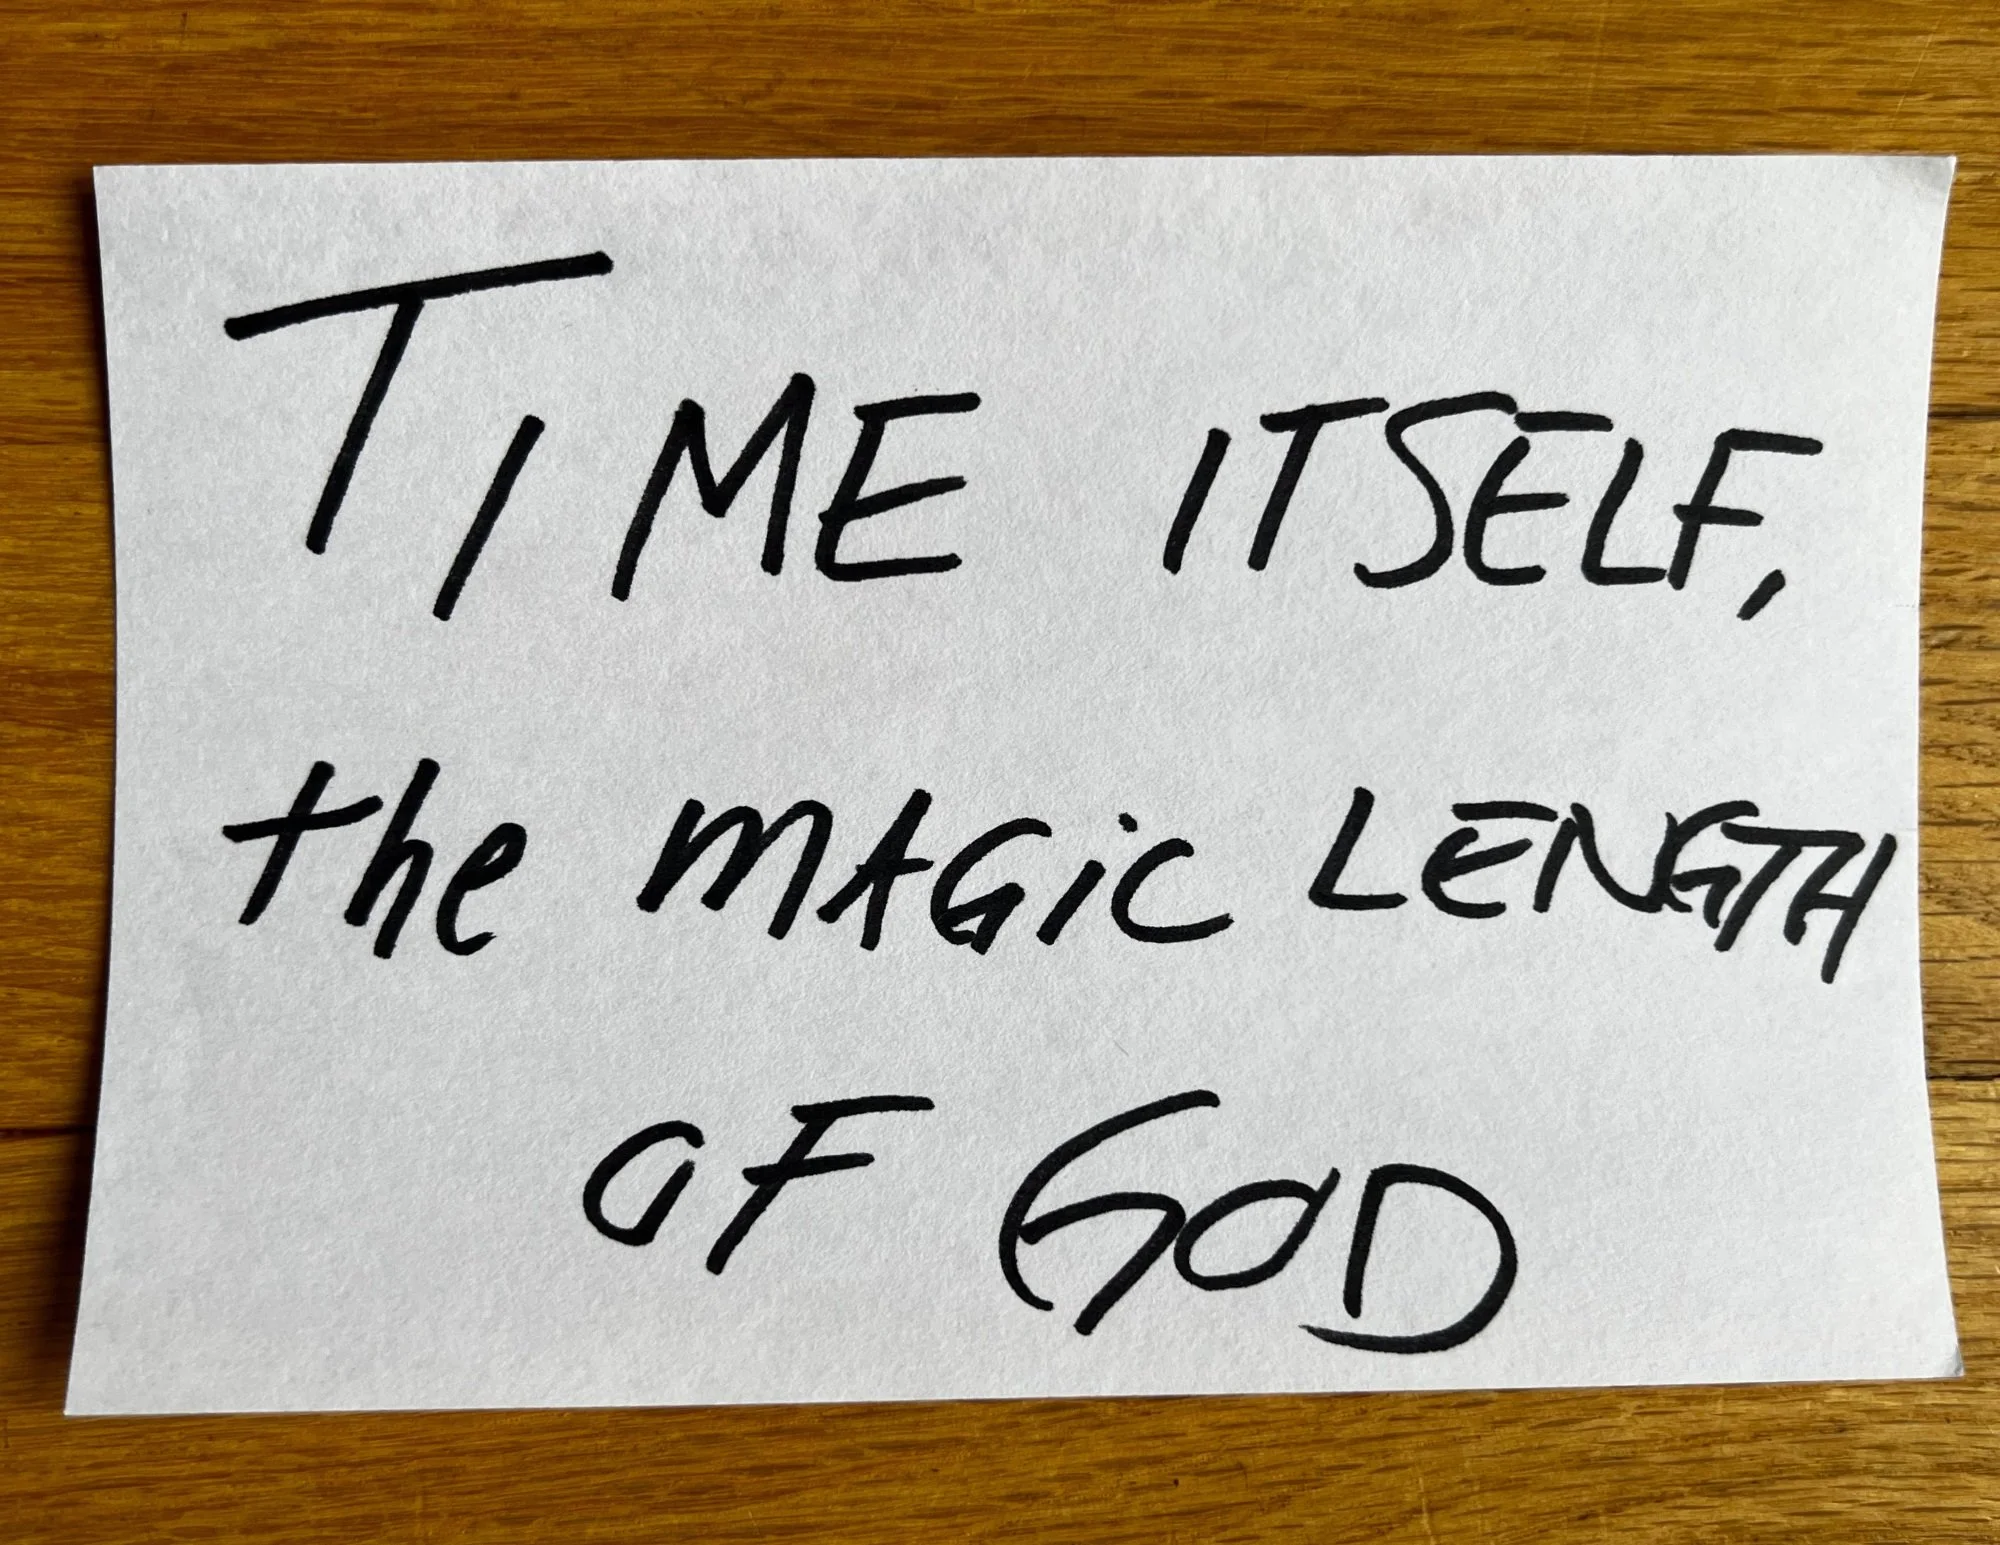 TIME ITSELF,
the MAGiC LENGTH
OF GOD